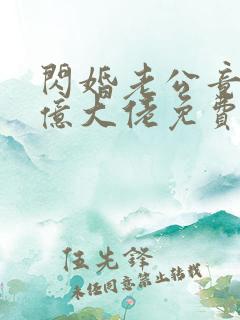 閃婚老公竟
億大佬免費
伍先鋒
未經同意禁止轉載